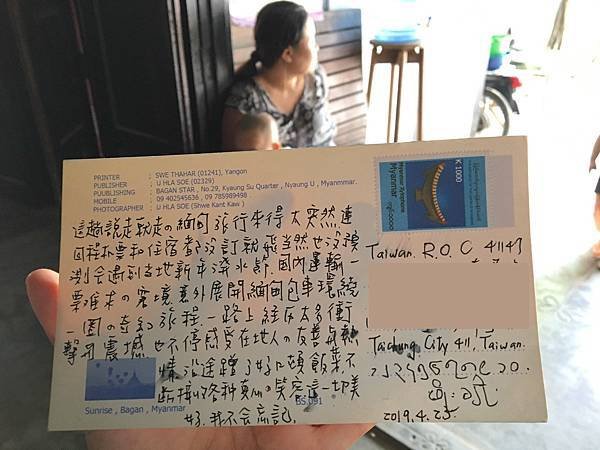 PRINTER : SWE THAHAR (01241), Yangon
PUBLISHER : U HLA SOE (02329)
PUUBLISHING : BAGAN STAR , No.29, Kyaung Su Quarter , Nyaung U , Myanmmar.
MOBILE : 09 402545636 , 09 785989498
PHOTOGRAPHER : U HLA SOE (Shwe Kant Kaw )
K 1000
Myanmar
這趟說走就走の緬甸旅行來得太突然連
回程机票和住宿都沒訂就飛當然也沒預
測会遇到當地新年潑水節.國內運輸一
票难求の窘境意外展開緬甸包車環繞
一圈の奇幻旅程.一路上經歷太多衝
擊与震撼 也不停感受在地人の友善与熱
情沿途蹭了好 頓飯菜不
斷接收各种真心の笑容.這一切美
好.我不会忘記.
Taiwan. R.O.C 41143
Taichung City 411, Taiwan.
2019.4.23.
Sunrise , Bagan , Myanmar
BS 091